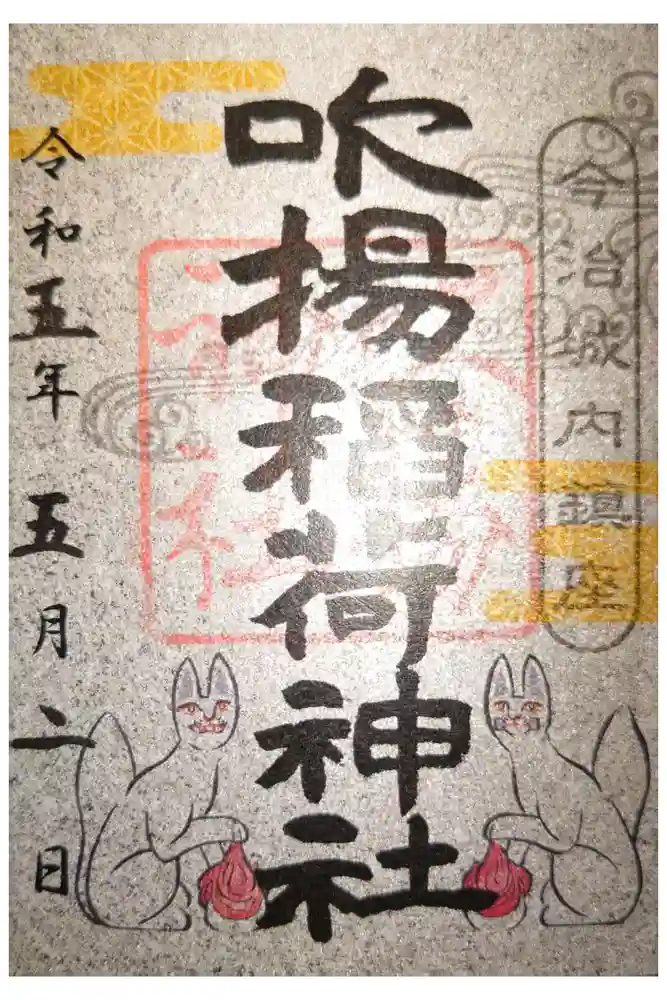 今治城内鎮座
吹揚稲荷神社
令和五年 五月二日